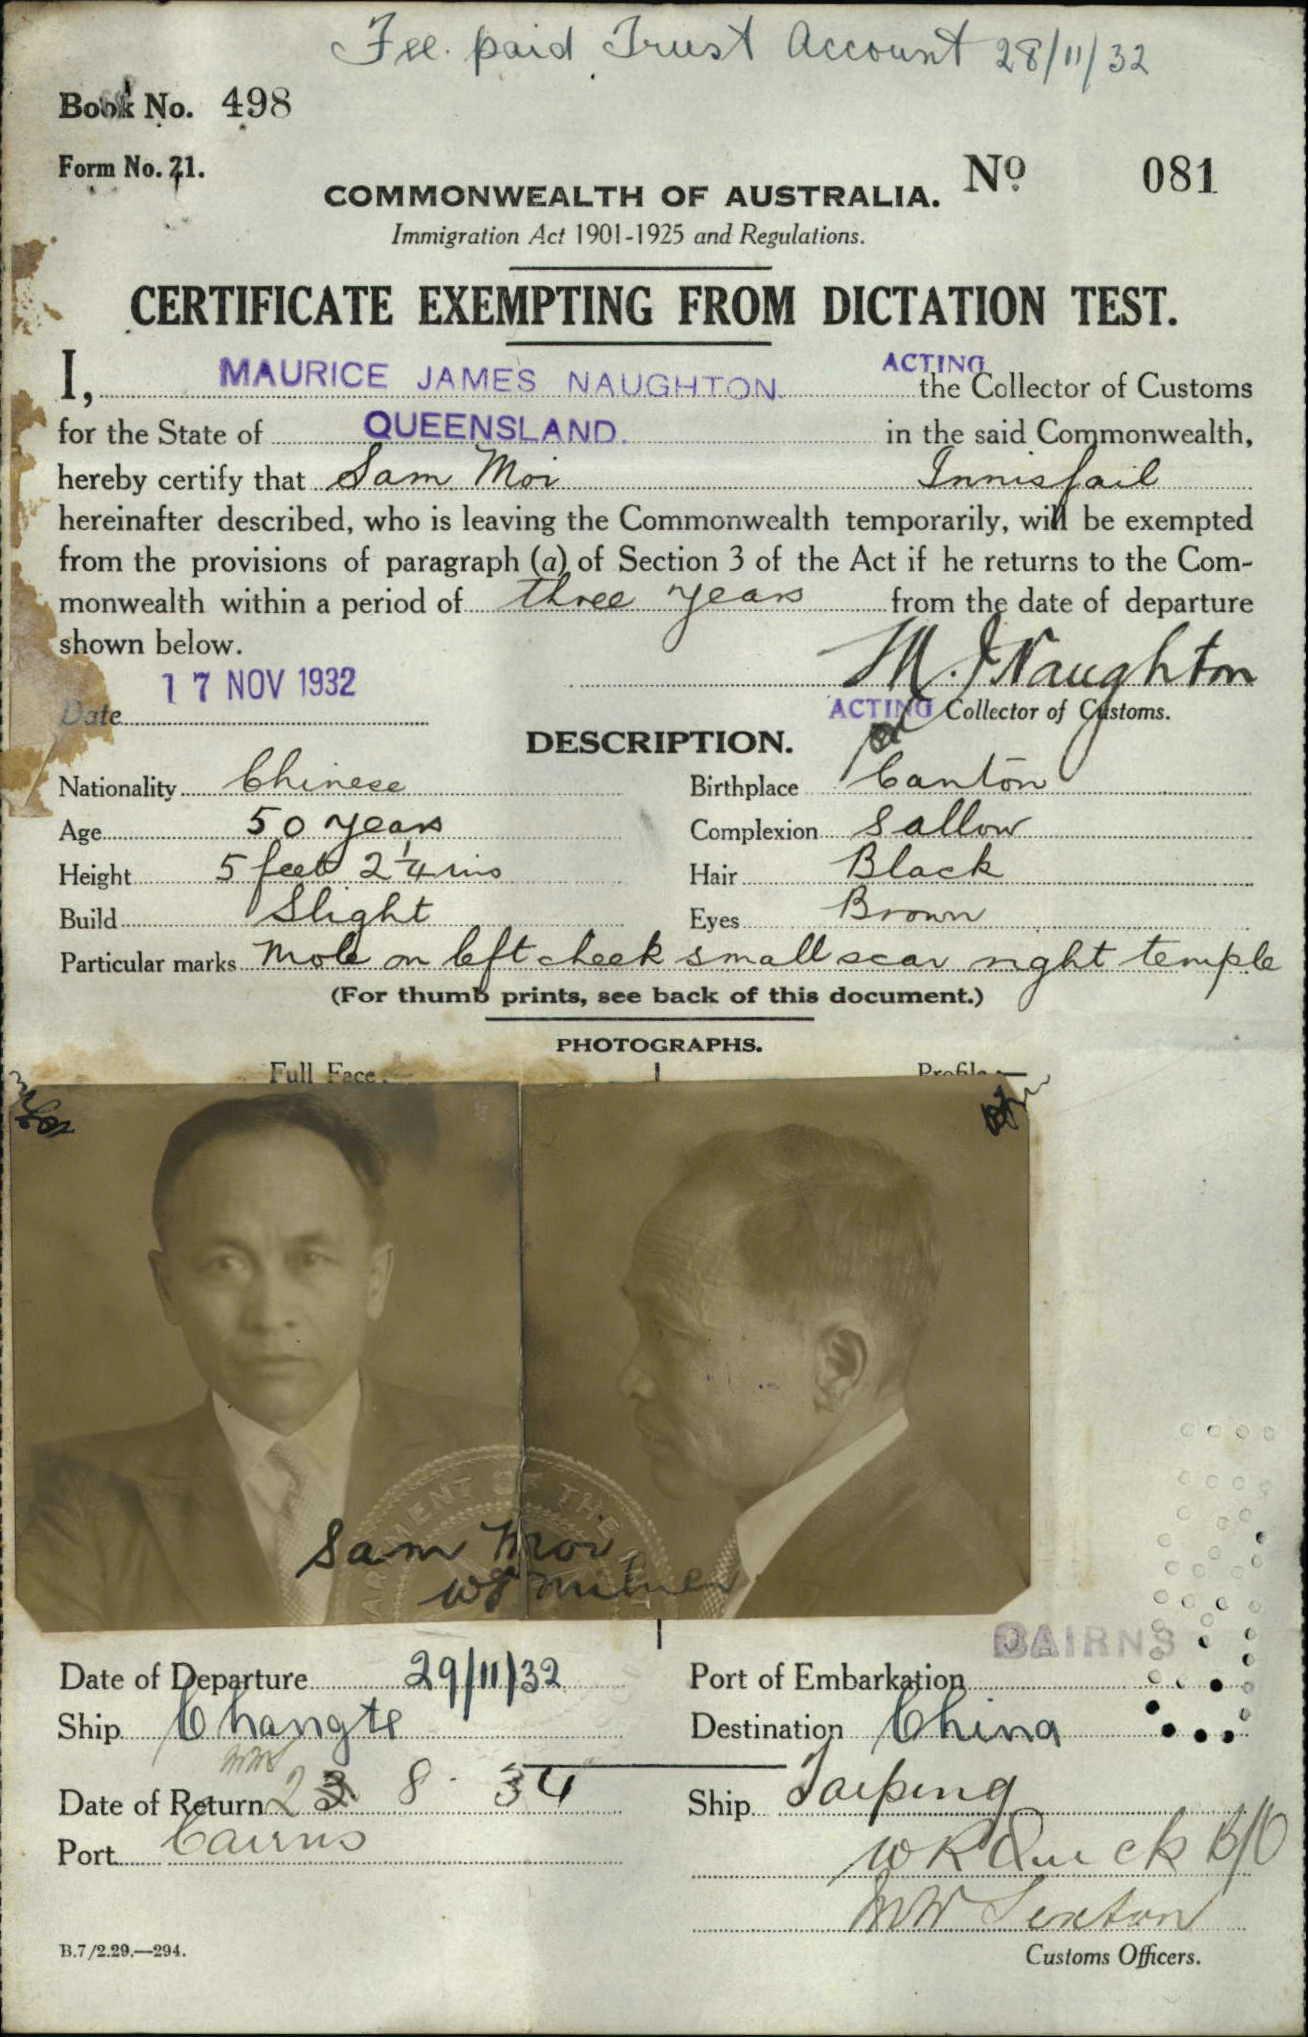 Fee paid Trust Account 28/11/32
Book No. 498
Form No. 21.
No 081
COMMONWEALTH OF AUSTRALIA.
Immigration Act 1901-1925 and Regulations.
CERTIFICATE EXEMPTING FROM DICTATION TEST.
I, MAURICE JAMES NAUGHTON ACTING the Collector of Customs
for the State of QUEENSLAND. in the said Commonwealth,
hereby certify that Sam Moi Innisfail
hereinafter described, who is leaving the Commonwealth temporarily, will be exempted
from the provisions of paragraph (a) of Section 3 of the Act if he returns to the Com-
monwealth within a period of three years from the date of departure
shown below.
M. J. Naughton
17 NOV 1932
Date
ACTING Collector of Customs.
DESCRIPTION.
Nationality Chinese Birthplace Canton
Age 50 years Complexion Sallow
Height 5 feet 2 1/4 ins Hair Black
Build Slight Eyes Brown
Particular marks Mole on left cheek small scar right temple
(For thumb prints, see back of this document.)
PHOTOGRAPHS.
Full Face Profile
MENT OF THE
Sam Moi
CAIRNS
Date of Departure 29/11/32 Port of Embarkation
Ship Changte Destination China
Date of Return 23 8 34 Ship Taiping
Port Cairns
W R Quick B/O
Customs Officers.
B.7/2.29.—294.